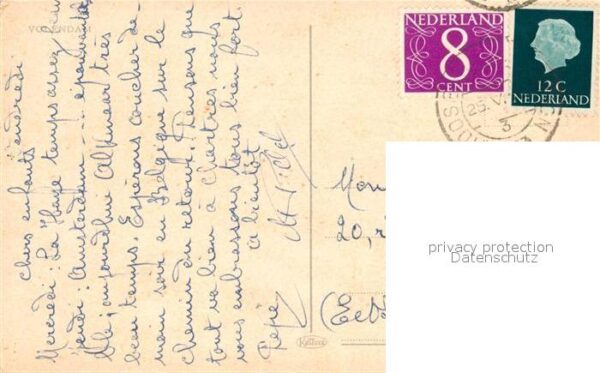 VOLENDAM
vendredi
Chers enfants
Mercredi: La Haye temps assez
jeudi: Amsterdam
aujourdhui Alkmaar très
beau temps. Espérons coucher de-
main soir en Belgique sur le
chemin du retour. Pensons que
tout va bien à Chartres nous
vous embrassons tous bien fort.
à bientôt
NEDERLAND
8
CENT
12 C
NEDERLAND
25.V
3
Mon
20, r
privacy protection
Datenschutz